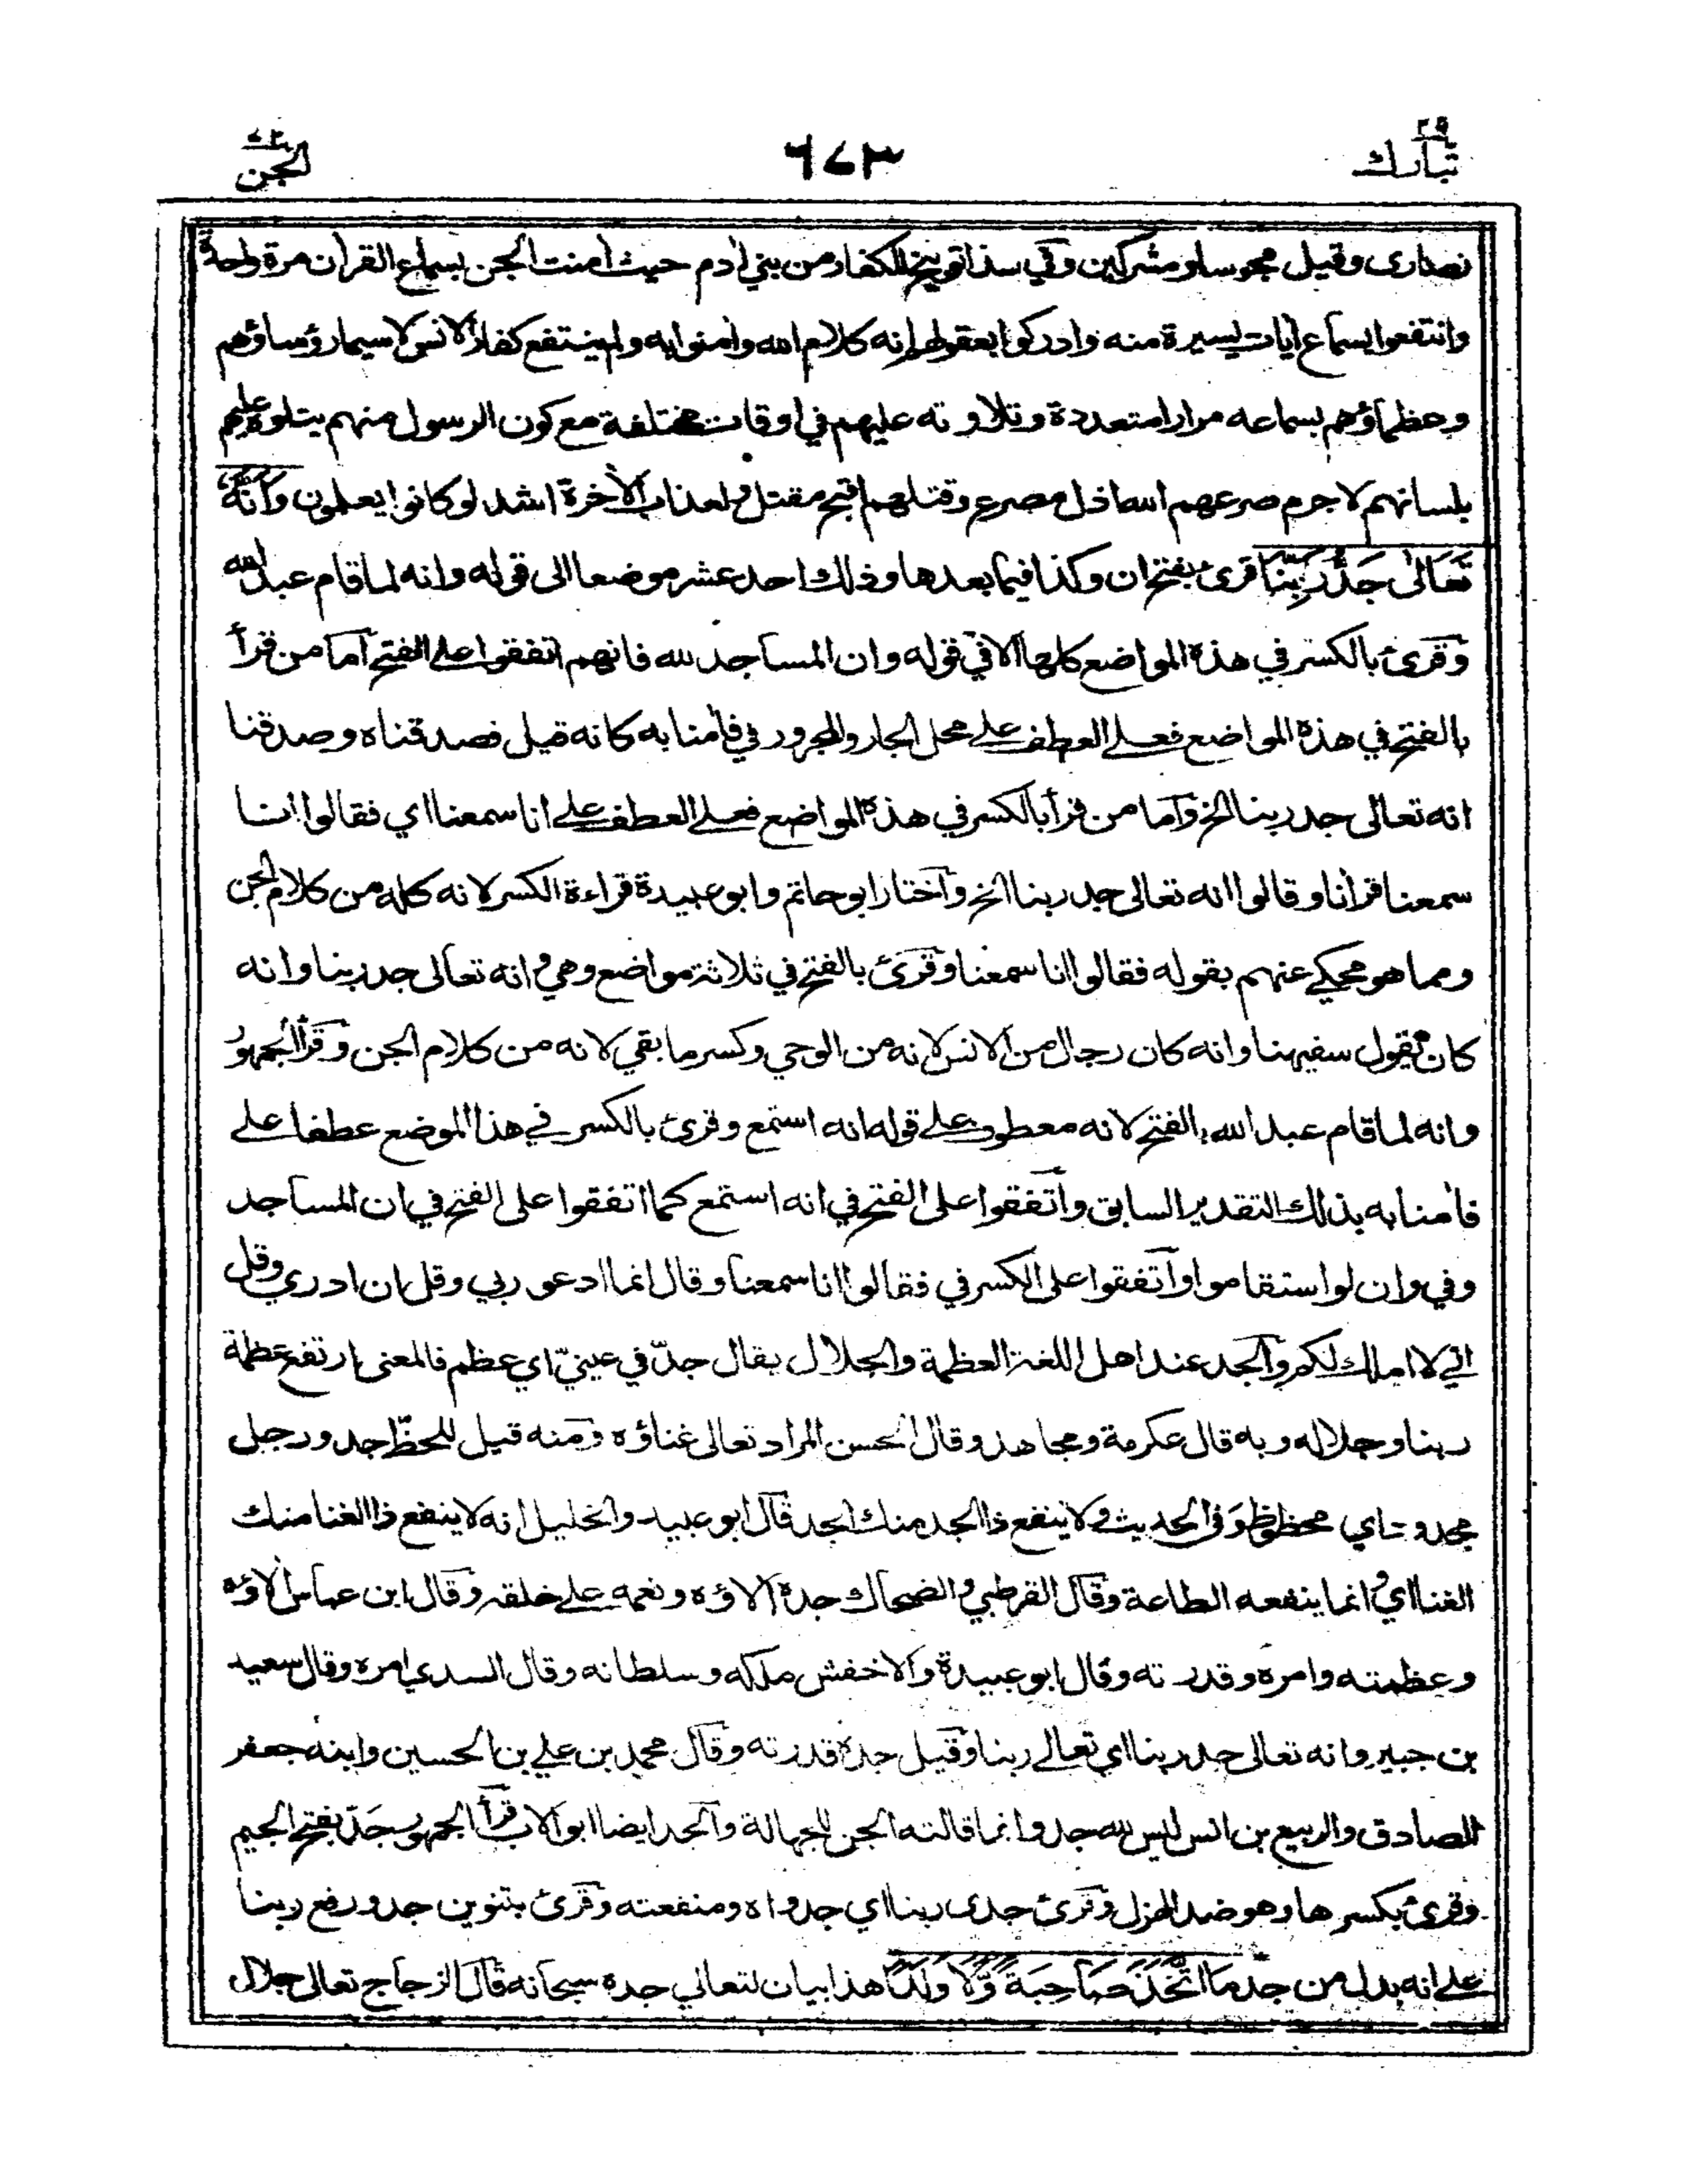 تبارك ٢٩
٦٧٣
الجن ٧٢
نصارى وقيل مجوسا ومشركين وفي هذا توبيخ للكفار من بني أدم حيث أمنت الجن بسماع القرأن مرة واحدة
وانتفعوا بسماع أيات يسيرة منه وادركوا بعقولهم انه كلام الله وأمنوا به ولم ينتفع كفار الانس لا سيما رؤساؤهم
وعظماؤهم بسماعه مرارا متعددة وتلاوته عليهم في اوقات مختلفة مع كون الرسول منهم يتلوه عليهم
بلسانهم لا جرم صرعهم الله اذل مصرع وقتلهم اقبح مقتل ولعذاب الأخرة اشد لو كانوا يعلمون وَأَنَّهُ
تَعَالٰى جَدُّ رَبِّنَا قرئ بفتح ان وكذا فيما بعدها وذلك احد عشر موضعا الى قوله وانه لما قام عبد الله
وقرئ بالكسر في هذه المواضع كلها الا في قوله وان المساجد لله فانهم اتفقوا على الفتح أما من قرأ
بالفتح في هذه المواضع فعلى العطف على محل الجار والمجرور في فأمنا به كانه قيل فصدقناه وصدقنا
انه تعالى جد ربنا الخ وأما من قرأ بالكسر في هذه المواضع فعلى العطف على انا سمعنا اي فقالوا انا
سمعنا قرأنا وقالوا انه تعالى جد ربنا الخ وأختار ابو حاتم وابو عبيدة قراءة الكسر لانه كله من كلام الجن
ومما هو محكي عنهم بقوله فقالوا انا سمعنا وقرئ بالفتح في ثلاثة مواضع وهي وانه تعالى جد ربنا وانه
كان يقول سفيهنا وانه كان رجال من الانس لانه من الوحي وكسر ما بقي لانه من كلام الجن وقرأ الجمهور
وانه لما قام عبد الله بالفتح لانه معطوف على قوله انه استمع وقرئ بالكسر في هذا الموضع عطفا على
فأمنا به بذلك التقدير السابق وأتفقوا على الفتح في انه استمع كما اتفقوا على الفتح في ان المساجد
وفي وان لو استقاموا وأتفقوا على الكسر في فقالوا انا سمعنا وقال انما ادعو ربي وقل ان ادري وقل
اني لا املك لكم وألجد عند اهل اللغة العظمة والجلال يقال جدّ في عينيّ اي عظم فالمعنى ارتفع عظمة
ربنا وجلاله وبه قال عكرمة ومجاهد وقال الحسن المراد تعالى غناؤه ومنه قيل للحظّ جد ورجل
مجدود اي محظوظ وفي الحديث ولا ينفع ذا الجد منك الجد قال ابو عبيد والخليل انه لا ينفع ذا الغنا منك
الغنا اي انما ينفعه الطاعة وقال القرطبي والضحاك جده ألاؤه ونعمه على خلقه وقال ابن عباس ألاؤه
وعظمته وامره وقدرته وقال ابو عبيدة والاخفش ملكه وسلطانه وقال السدي امره وقال سعيد
بن جبير وانه تعالى جد ربنا اي تعالى ربنا وقيل جده قدرته وقال محمد بن علي بن الحسين وابنه جعفر
الصادق والربيع بن انس ليس لله جد وانما قالته الجن للجهالة وألجد ايضا ابو الاب قرأ الجمهور جَدّ بفتح الجيم
وقرئ بكسرها وهو ضد الهزل وقرئ جدى ربنا اي جدواه ومنفعته وقرئ بتنوين جد ورفع ربنا
على انه بدل من جد مَا اتَّخَذَ صَاحِبَةً وَّلَا وَلَدًا هذا بيان لتعالي جده سبحانه قال الزجاج تعالى جلال